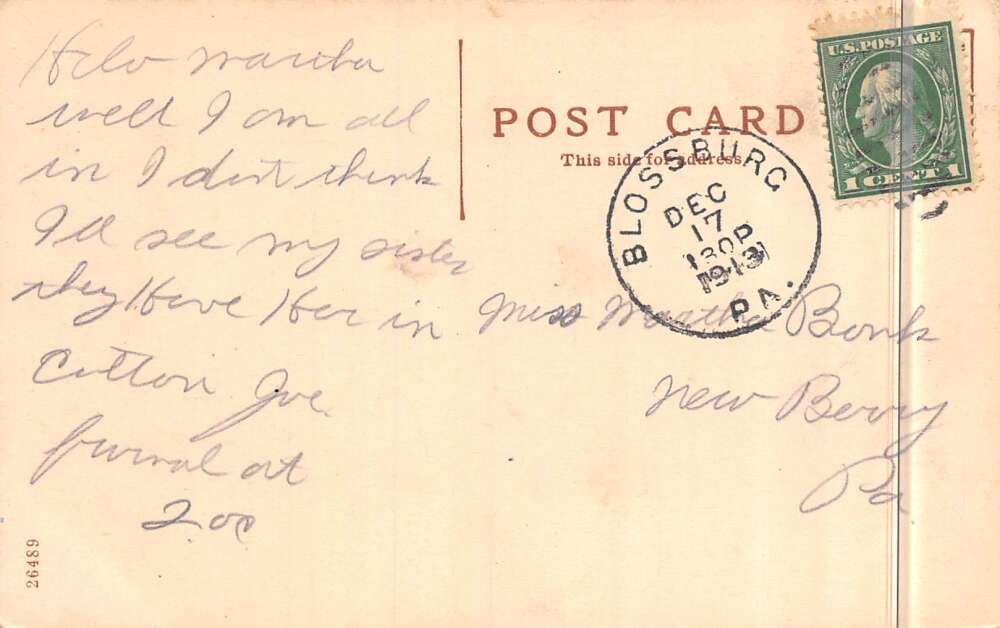 Hello Martha
well I am all
in I dont think
I'll see my sister
they Have Her in
Cotton Joe
furnal at
2 oc
26489
POST CARD
This side for address.
U.S. POSTAGE
1 CENT 1
BLOSSBURG
DEC
17
130P
1913
PA.
Miss Martha Bonk
New Berry
Pa